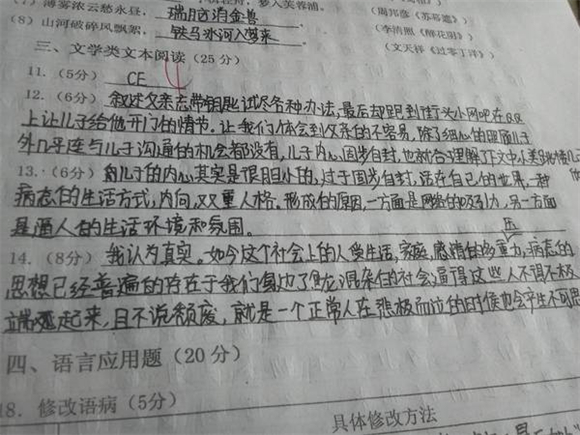 (7) 薄雾浓云愁永昼, 瑞脑消金兽
(8) 山河破碎风飘絮, 铁马冰河入梦来
(周邦彦《苏幕遮》)
(李清照《醉花阴》)
(文天祥《过零丁洋》)
三、文学类文本阅读(25分)
11.(5分) CE
12.(6分) 叙述父亲忘带钥匙试尽各种办法,最后却跑到街头小网吧在QQ
上让儿子给他开门的情节。让我们体会到父亲的不容易,除了细心的照顾儿子
外几乎连与儿子沟通的机会都没有,儿子内心固步自封,也就合理解了下文中
13.(6分) 儿子的内心其实是很胆小的,过于固步自封,活在自己的世界,一种
病态的生活方式,内向,双重人格。形成的原因,一方面是网络的吸引力,另一方面
是逼人的生活环境和氛围。
14.(8分) 我认为真实。如今这个社会上的人受生活,家庭,感情的多重压力,病态的
思想已经普遍的存在于我们身边了鱼龙混杂的社会,逼得这些人不得不极
端起来,且不说颓废,就是一个正常人在悲极而泣的时候也会产生不可思
四、语言应用题(20分)
18. 修改语病(5分)
具体修改方法